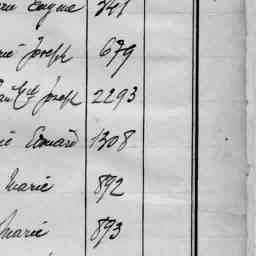 Eugene 341
Joseph 679
Joseph 2293
Edouard 1308
Marie 892
Marie 893